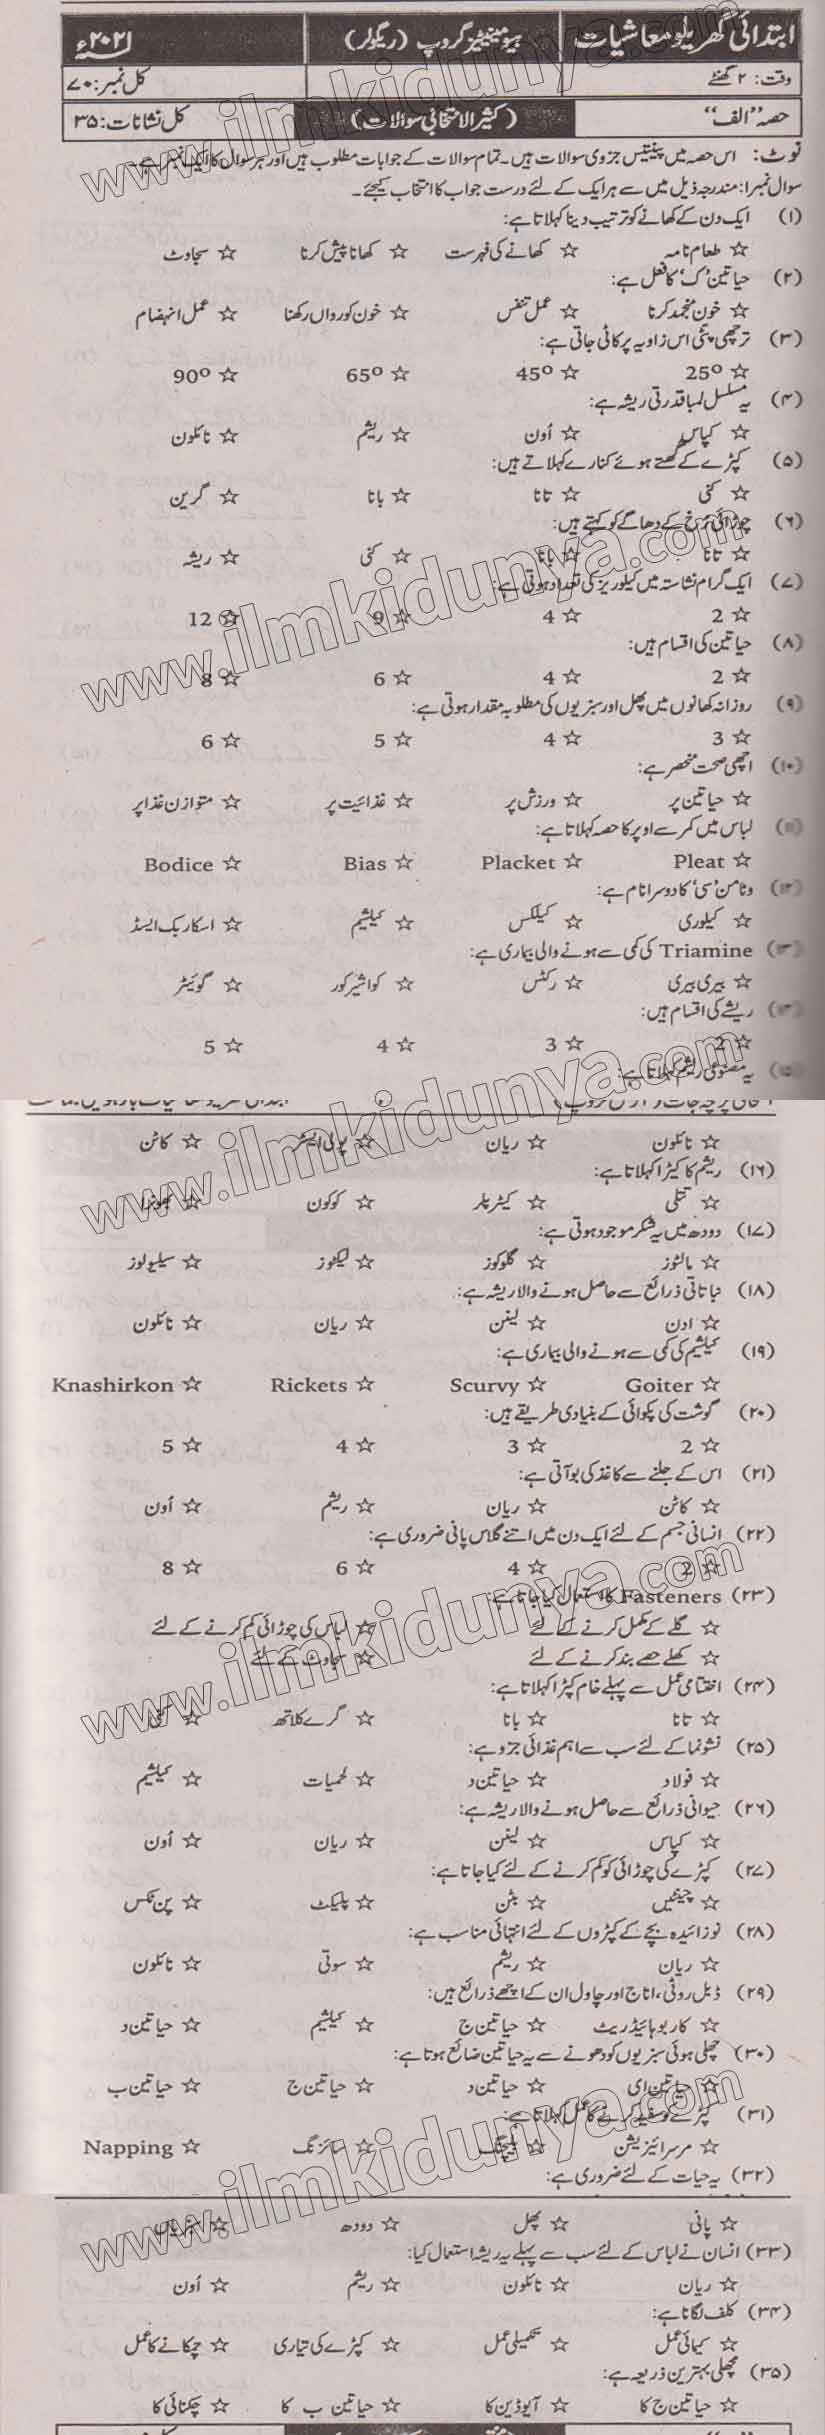 ابتدائی گھریلو معاشیات ہیومینیٹیز گروپ (ریگولر) ۲۰۲۱ء
وقت: ۲ گھنٹے کل نمبر: ۷۰
حصہ ”الف“ (کثیر الانتخابی سوالات) کل نشانات: ۳۵
نوٹ: اس حصہ میں پینتیس جزوی سوالات ہیں۔ تمام سوالات کے جوابات مطلوب ہیں اور ہر سوال کا ایک نمبر ہے۔
سوال نمبر۱: مندرجہ ذیل میں سے ہر ایک کے لئے درست جواب کا انتخاب کیجئے۔
(۱) ایک دن کے کھانے کو ترتیب دینا کہلاتا ہے:
☆ طعام نامہ ☆ کھانے کی فہرست ☆ کھانا پیش کرنا ☆ سجاوٹ
(۲) حیاتین ’ک‘ کا فعل ہے:
☆ خون منجمد کرنا ☆ عمل تنفس ☆ خون کو رواں رکھنا ☆ عمل انہضام
(۳) ترچھی پٹی اس زاویہ پر کاٹی جاتی ہے:
☆ 25º ☆ 45º ☆ 65º ☆ 90º
(۴) یہ مسلسل لمبا قدرتی ریشہ ہے:
☆ کپاس ☆ اُون ☆ ریشم ☆ نائلون
(۵) کپڑے کے گھتے ہوئے کنارے کہلاتے ہیں:
☆ کنی ☆ تانا ☆ بانا ☆ گرین
(۶) چوڑائی رُخ کے دھاگے کو کہتے ہیں:
☆ تانا ☆ بانا ☆ کنی ☆ ریشہ
(۷) ایک گرام نشاستہ میں کیلوریز کی تعداد ہوتی ہے:
☆ 2 ☆ 4 ☆ 9 ☆ 12
(۸) حیاتین کی اقسام ہیں:
☆ 2 ☆ 4 ☆ 6 ☆ 8
(۹) روزانہ کھانوں میں پھل اور سبزیوں کی مطلوبہ مقدار ہوتی ہے:
☆ 3 ☆ 4 ☆ 5 ☆ 6
(۱۰) اچھی صحت منحصر ہے:
☆ حیاتین پر ☆ ورزش پر ☆ غذائیت پر ☆ متوازن غذا پر
(۱۱) لباس میں کمر سے اوپر کا حصہ کہلاتا ہے:
☆ Pleat ☆ Placket ☆ Bias ☆ Bodice
(۱۲) وٹامن ’سی‘ کا دوسرا نام ہے:
☆ کیلوری ☆ کیلکس ☆ کیلشیم ☆ اسکاربک ایسڈ
(۱۳) Triamine کی کمی سے ہونے والی بیماری ہے:
☆ بیری بیری ☆ رکٹس ☆ کواشیرکور ☆ گوئیٹر
(۱۴) ریشے کی اقسام ہیں:
☆ 2 ☆ 3 ☆ 4 ☆ 5
(۱۵) یہ مصنوعی ریشم کہلاتا ہے:
☆ نائلون ☆ ریان ☆ پولی ایسٹر ☆ کاٹن
(۱۶) ریشم کا کیڑا کہلاتا ہے:
☆ تتلی ☆ کیٹرپلر ☆ کوکون ☆ بھونرا
(۱۷) دودھ میں یہ شکر موجود ہوتی ہے:
☆ مالٹوز ☆ گلوکوز ☆ لیکٹوز ☆ سیلیولوز
(۱۸) نباتاتی ذرائع سے حاصل ہونے والا ریشہ ہے:
☆ اون ☆ لینن ☆ ریان ☆ نائلون
(۱۹) کیلشیم کی کمی سے ہونے والی بیماری ہے:
☆ Goiter ☆ Scurvy ☆ Rickets ☆ Knashirkon
(۲۰) گوشت کی پکوائی کے بنیادی طریقے ہیں:
☆ 2 ☆ 3 ☆ 4 ☆ 5
(۲۱) اس کے جلنے سے کاغذ کی بو آتی ہے:
☆ کاٹن ☆ ریان ☆ ریشم ☆ اُون
(۲۲) انسانی جسم کے لئے ایک دن میں اتنے گلاس پانی ضروری ہے:
☆ 2 ☆ 4 ☆ 6 ☆ 8
(۲۳) Fasteners کا استعمال کیا جاتا ہے:
☆ گلے کے مکمل کرنے کے لئے ☆ لباس کی چوڑائی کم کرنے کے لئے
☆ کھلے حصے بند کرنے کے لئے ☆ سجاوٹ کے لئے
(۲۴) اختتامی عمل سے پہلے خام کپڑا کہلاتا ہے:
☆ تانا ☆ بانا ☆ گرے کلاتھ ☆ کنی
(۲۵) نشونما کے لئے سب سے اہم غذائی جزو ہے:
☆ فولاد ☆ حیاتین د ☆ لحمیات ☆ کیلشیم
(۲۶) حیوانی ذرائع سے حاصل ہونے والا ریشہ ہے:
☆ کپاس ☆ لینن ☆ ریان ☆ اُون
(۲۷) کپڑے کی چوڑائی کو کم کرنے کے لئے کیا جاتا ہے:
☆ چینٹیں ☆ بٹن ☆ پلیکٹ ☆ پن ٹکس
(۲۸) نوزائیدہ بچے کے کپڑوں کے لئے انتہائی مناسب ہے:
☆ ریان ☆ ریشم ☆ سوتی ☆ نائلون
(۲۹) ڈبل روٹی، اناج اور چاول ان کے اچھے ذرائع ہیں:
☆ کاربوہائیڈریٹ ☆ حیاتین ج ☆ کیلشیم ☆ حیاتین د
(۳۰) چھلی ہوئی سبزیوں کو دھونے سے یہ حیاتین ضائع ہوتا ہے:
☆ حیاتین ای ☆ حیاتین د ☆ حیاتین ج ☆ حیاتین ب
(۳۱) کپڑے کو سفید کرنے کا عمل کہلاتا ہے:
☆ مرسرائیزیشن ☆ بلیچنگ ☆ سائزنگ ☆ Napping
(۳۲) یہ حیات کے لئے ضروری ہے:
☆ پانی ☆ پھل ☆ دودھ ☆ سبزیاں
(۳۳) انسان نے لباس کے لئے سب سے پہلے یہ ریشہ استعمال کیا:
☆ ریان ☆ نائلون ☆ ریشم ☆ اُون
(۳۴) کلف لگانا ہے:
☆ کیمائی عمل ☆ تکمیلی عمل ☆ کپڑے کی تیاری ☆ چمکانے کا عمل
(۳۵) مچھلی بہترین ذریعہ ہے:
☆ حیاتین ج کا ☆ آیوڈین کا ☆ حیاتین ب کا ☆ چکنائی کا
www.ilmkidunya.com
www.ilmkidunya.com
www.ilmkidunya.com
www.ilmkidunya.com
www.ilmkidunya.com